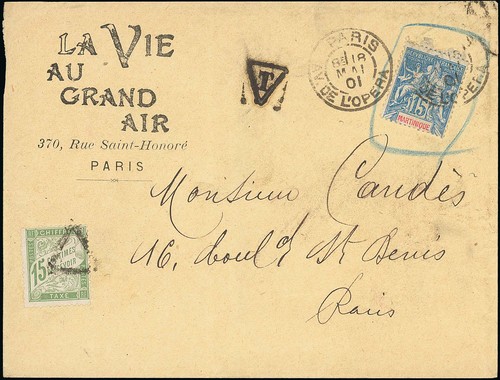 LA VIE
AU
GRAND
AIR
370, Rue Saint-Honoré
PARIS
T
PARIS
18
MAI
01
AV. DE L'OPÉRA
15
MARTINIQUE
Monsieur Candès
16, boul.d St Denis
Paris
CHIFFRE
15
TAXE